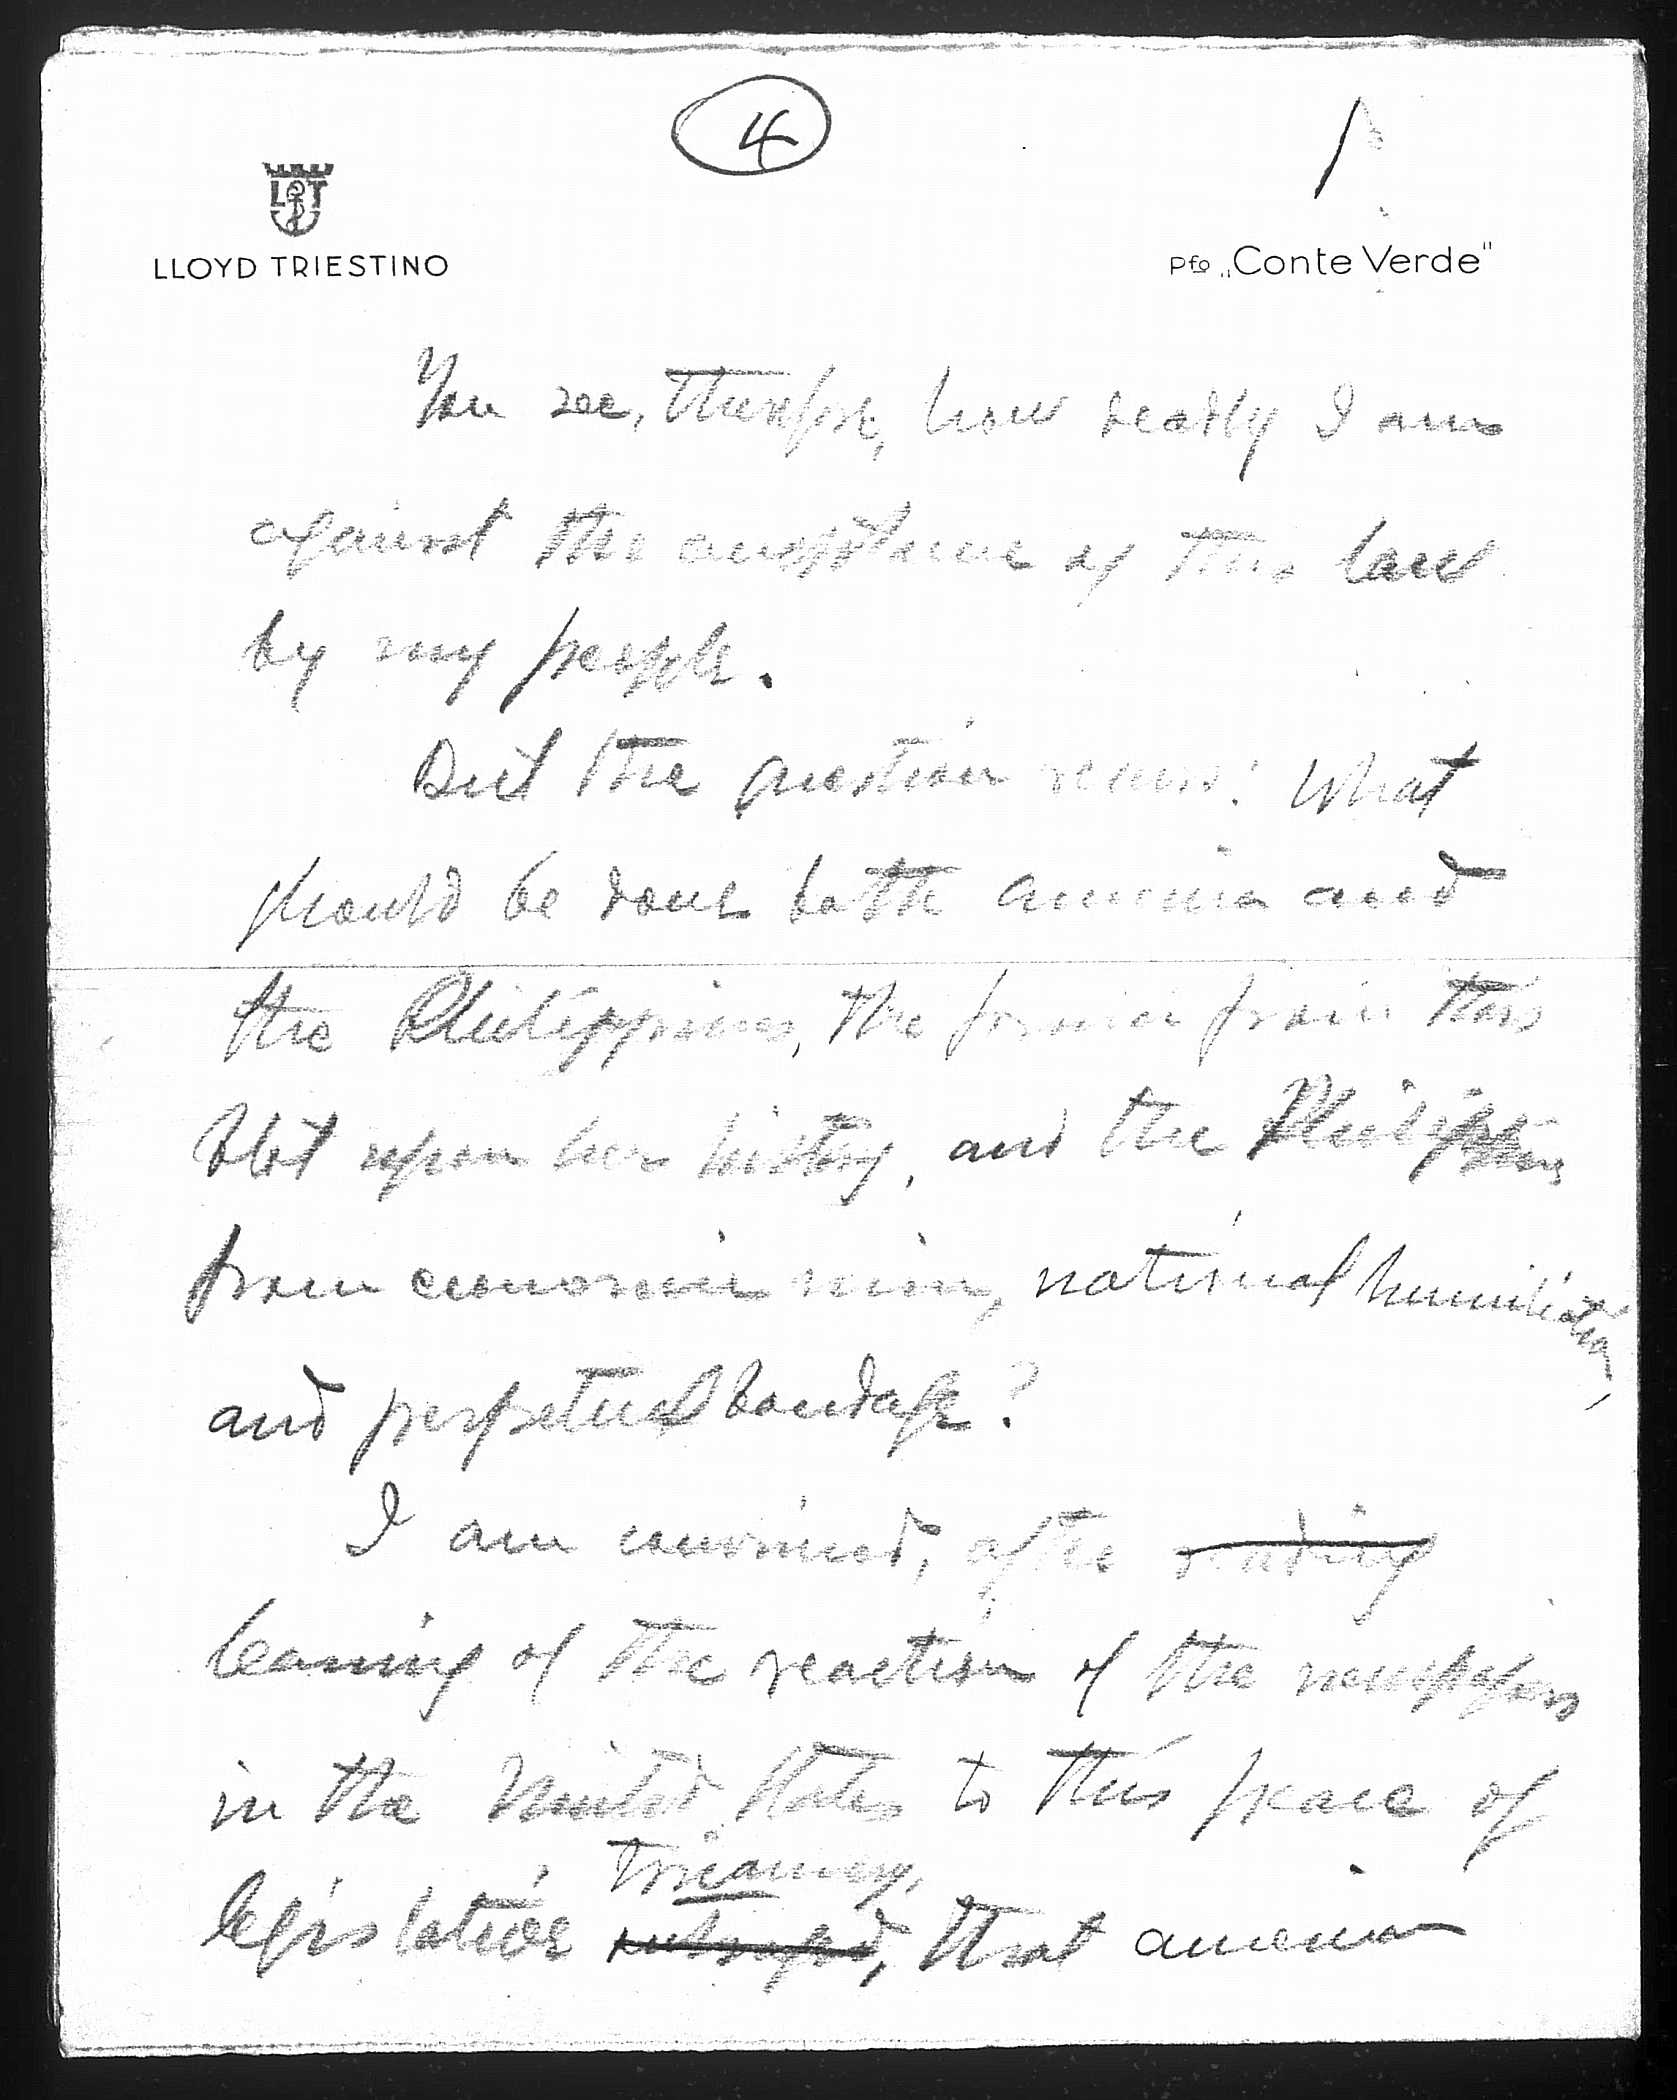 4
LLOYD TRIESTINO
Pfo „Conte Verde"
You see, therefore, how deadly I am
against the acceptance of this law
by my people.
But the question recurs: What
should be done both America and
the Philippines, the former from this
blot upon her history, and the Philippines
from economic ruin, national humiliation,
and perpetual bondage?
I am convinced, after reading
learning of the reaction of the newspapers
in the United States to this peace of
legislative
that America